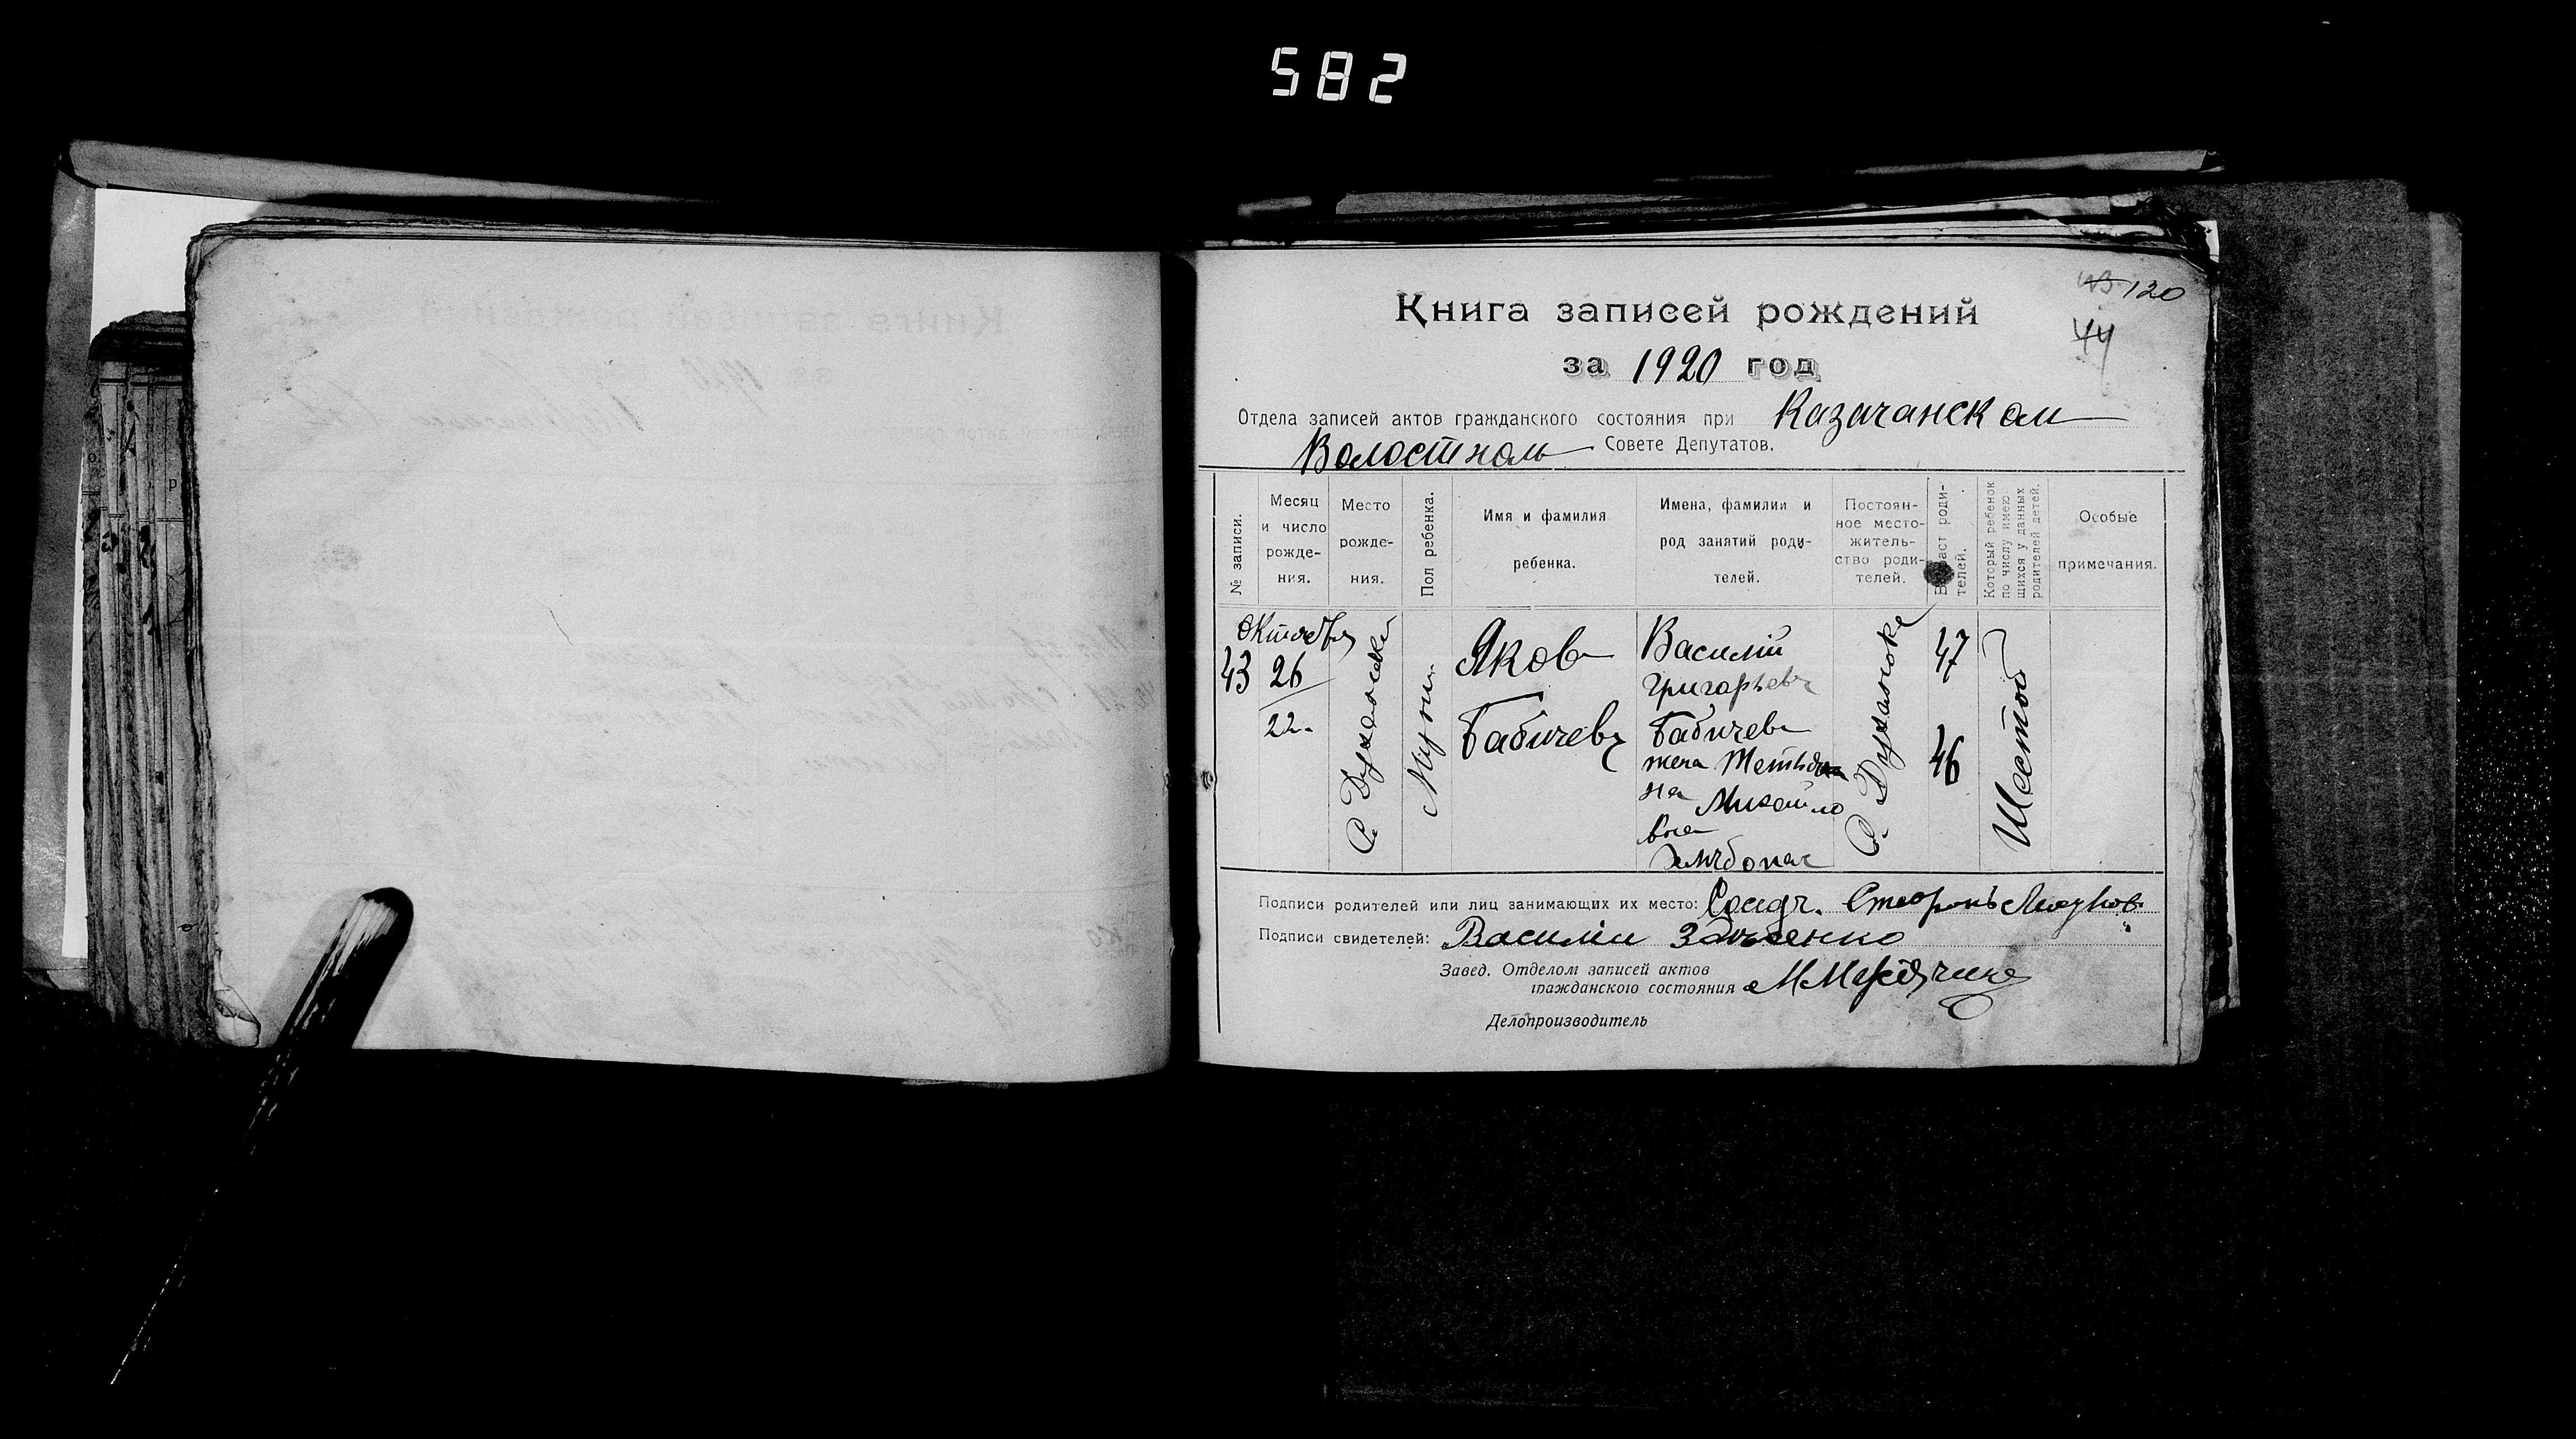 582
120
44
Книга записей рождений
за 1920 год
Отдела записей актов гражданского состояния при Казачанском
Волостном Совете Депутатов.
№ записи.
Месяц и число рожде- ния.
Место рожде- ния.
Пол ребенка.
Имя и фамилия ребенка.
Имена, фамилии и род занятий роди- телей.
Постоян- ное место- житель- ство роди- телей.
Возраст роди- телей.
Который ребенок по числу имею- щихся у данных родителей детей.
Особые примечания.
43
Октября
26
22
С.
Яков
Бабичевъ
Василий
Григорьевъ
Бабичев
жена
на Михайло
вна
С.
47
46
Шестой
Подписи родителей или лиц занимающих их место:
Подписи свидетелей: Василий
Завед. Отделом записей актов
гражданского состояния
Делопроизводитель